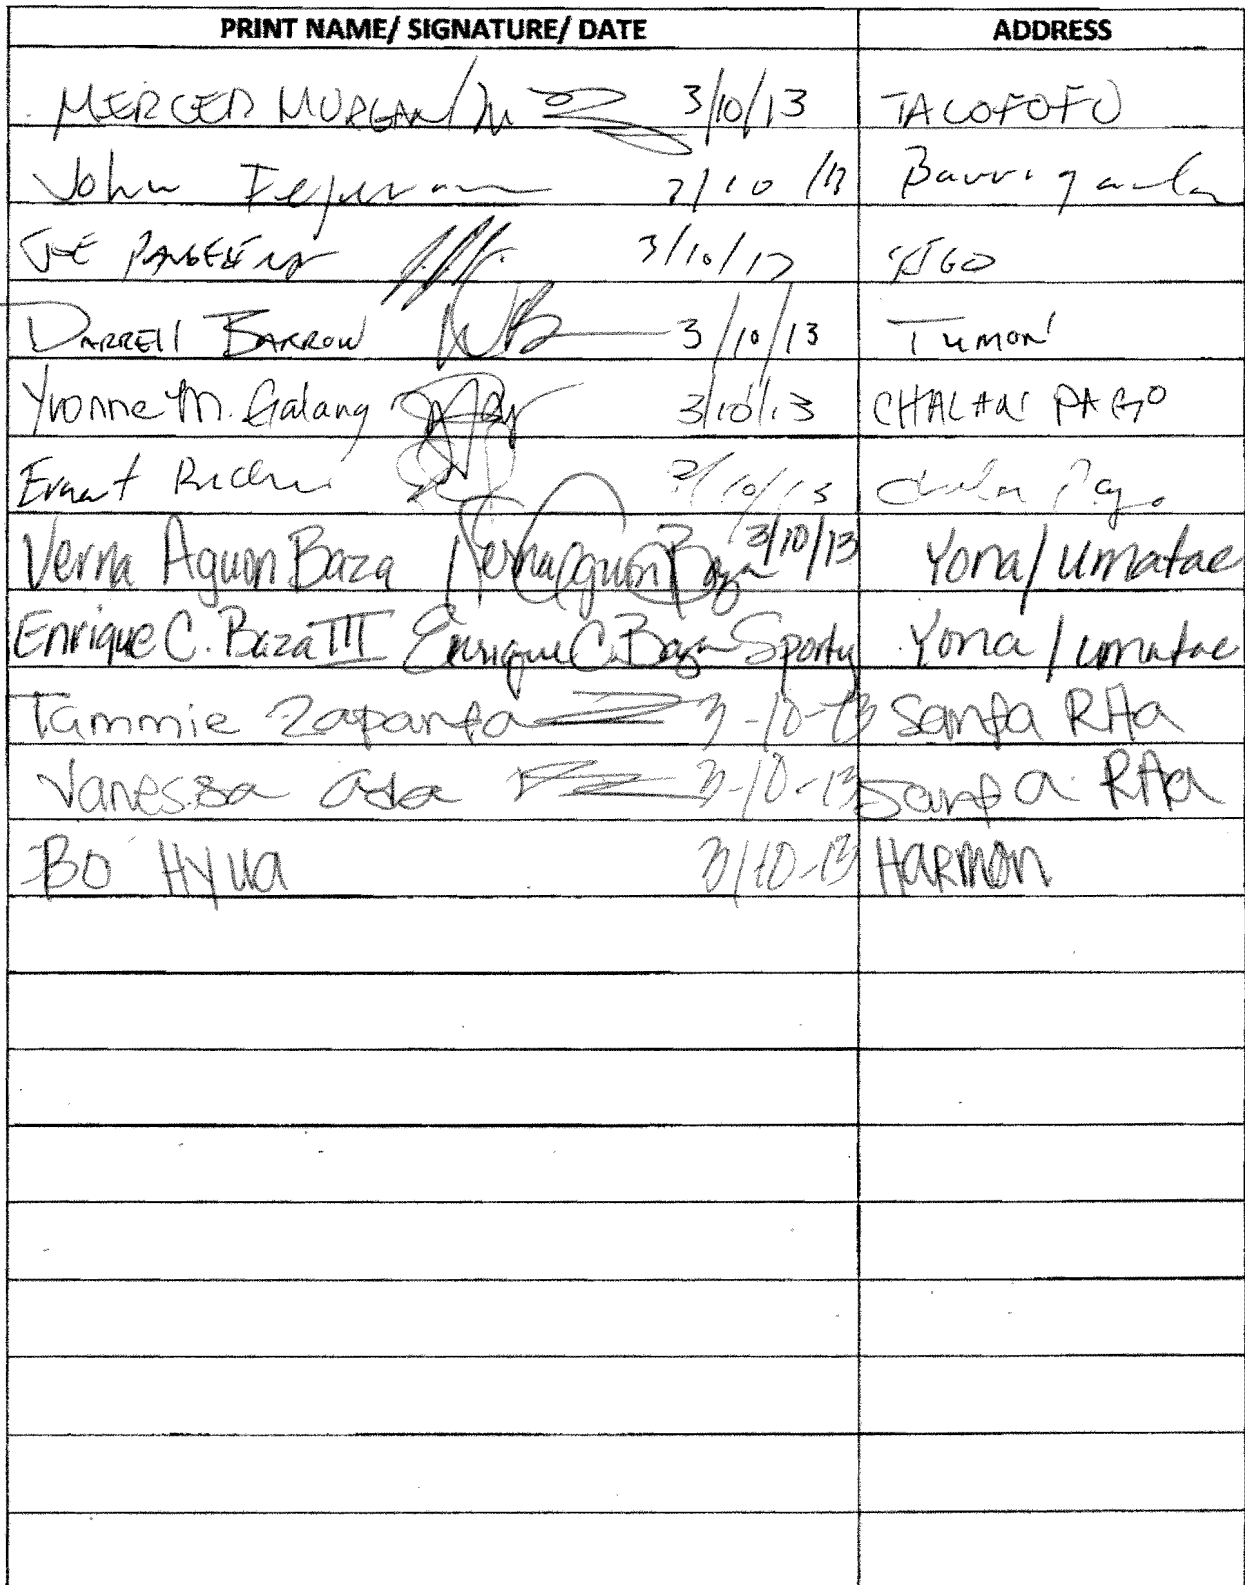 PRINT NAME/ SIGNATURE/ DATE ADDRESS
MERCED MORGAN 3/10/13 TALOFOFO
John 3/10/13 Barrigada
JOE 3/10/13 YIGO
DARRELL BARROW 3/10/13 TUMON
Yvonne M. Galang 3/10/13 CHALAN PAGO
3/10/13
Verna Aguon Baza Verna Aguon Baza 3/10/13 Yona/Umatac
Enrique C. Baza III Enrique C. Baza Yona/Umatac
Tammie Zapanta 3-10-13 Santa RitA
Vanessa Ada 3-10-13 Santa RitA
BO Hyua 3/10-13 HARMON